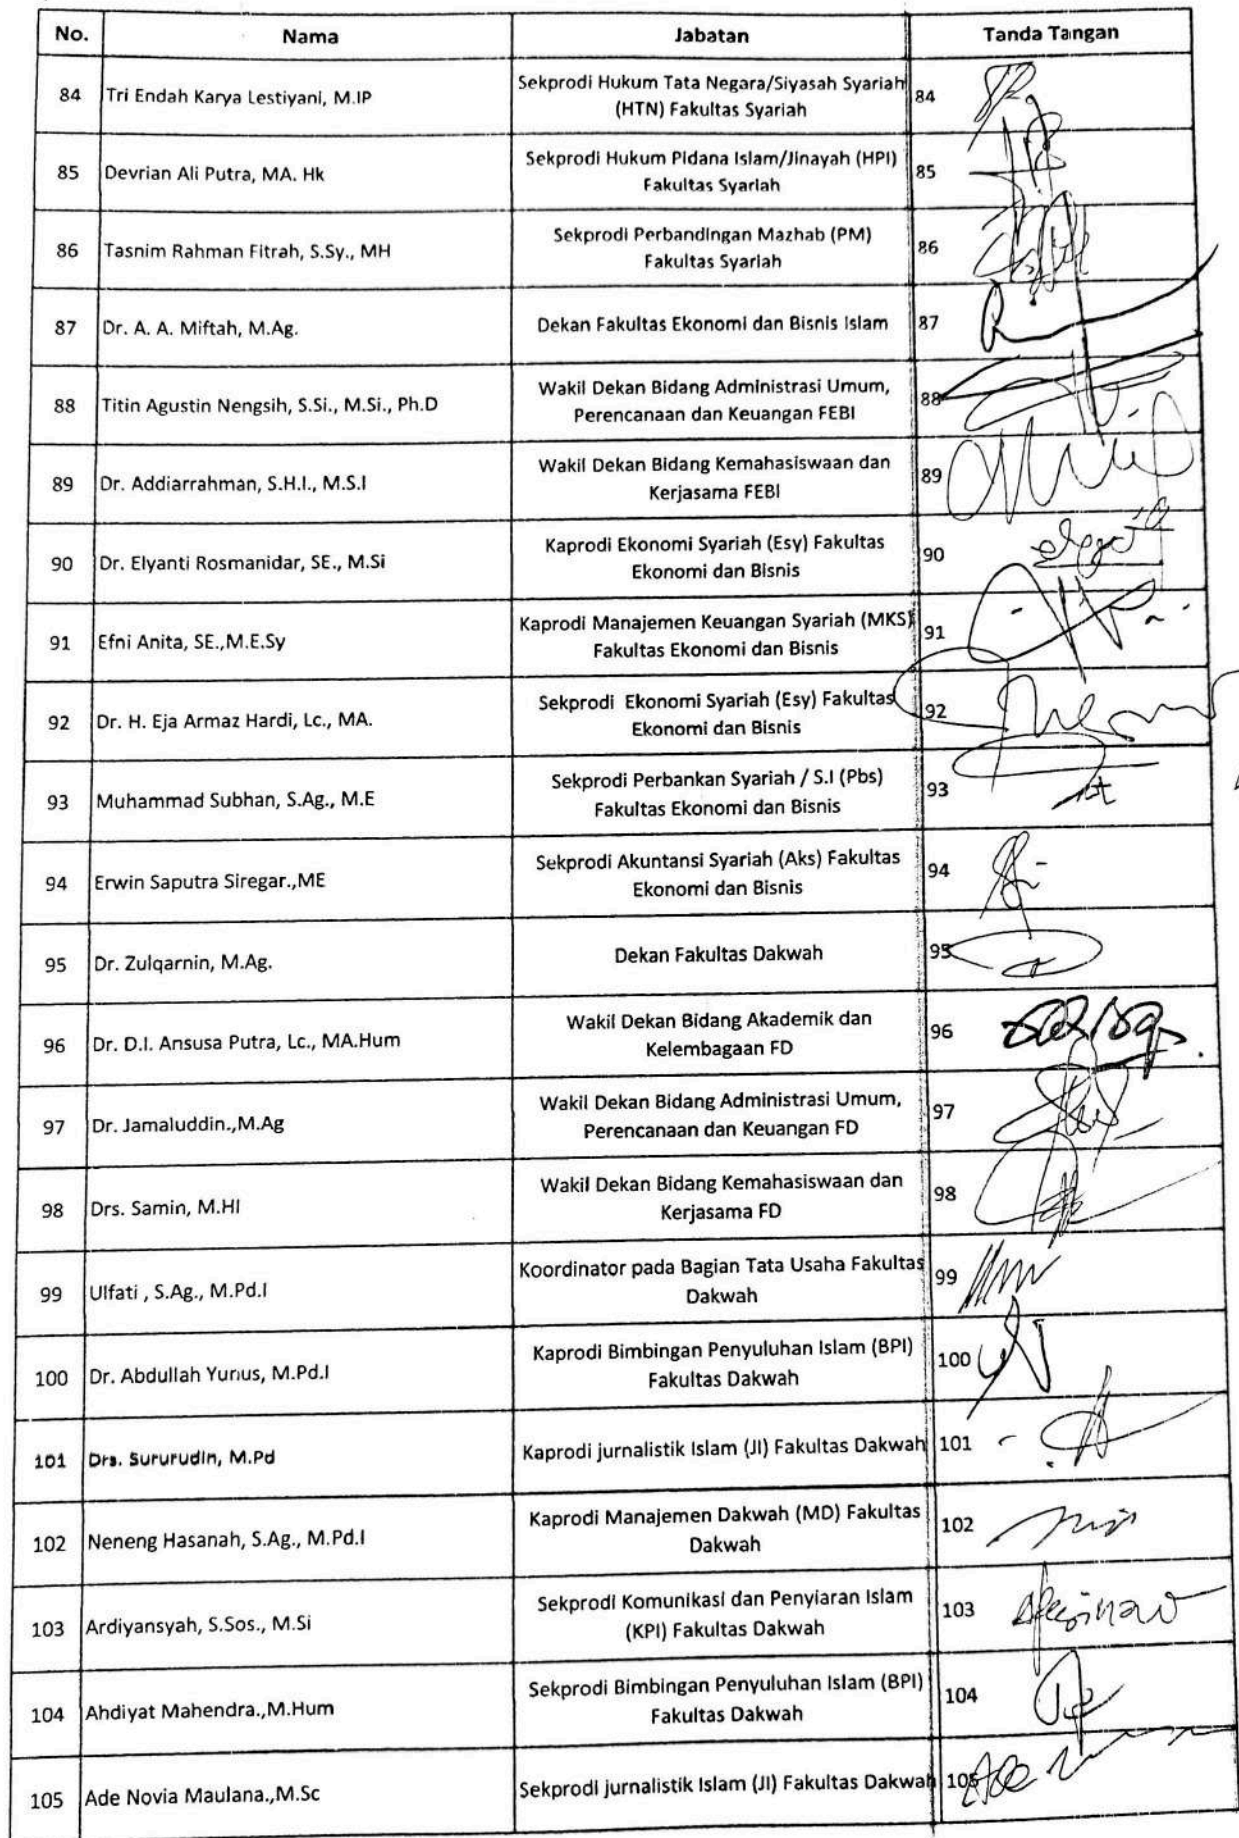 No. Nama Jabatan Tanda Tangan
84 Tri Endah Karya Lestiyani, M.IP Sekprodi Hukum Tata Negara/Siyasah Syariah 84
(HTN) Fakultas Syariah
85 Devrian Ali Putra, MA. Hk Sekprodi Hukum Pidana Islam/Jinayah (HPI) 85
Fakultas Syariah
86 Tasnim Rahman Fitrah, S.Sy., MH Sekprodi Perbandingan Mazhab (PM) 86
Fakultas Syariah
87 Dr. A. A. Miftah, M.Ag. Dekan Fakultas Ekonomi dan Bisnis Islam 87
88 Titin Agustin Nengsih, S.Si., M.Si., Ph.D Wakil Dekan Bidang Administrasi Umum, 88
Perencanaan dan Keuangan FEBI
89 Dr. Addiarrahman, S.H.I., M.S.I Wakil Dekan Bidang Kemahasiswaan dan 89
Kerjasama FEBI
90 Dr. Elyanti Rosmanidar, SE., M.Si Kaprodi Ekonomi Syariah (Esy) Fakultas 90
Ekonomi dan Bisnis
91 Efni Anita, SE.,M.E.Sy Kaprodi Manajemen Keuangan Syariah (MKS) 91
Fakultas Ekonomi dan Bisnis
92 Dr. H. Eja Armaz Hardi, Lc., MA. Sekprodi Ekonomi Syariah (Esy) Fakultas 92
Ekonomi dan Bisnis
93 Muhammad Subhan, S.Ag., M.E Sekprodi Perbankan Syariah / S.I (Pbs) 93
Fakultas Ekonomi dan Bisnis
94 Erwin Saputra Siregar.,ME Sekprodi Akuntansi Syariah (Aks) Fakultas 94
Ekonomi dan Bisnis
95 Dr. Zulqarnin, M.Ag. Dekan Fakultas Dakwah 95
96 Dr. D.I. Ansusa Putra, Lc., MA.Hum Wakil Dekan Bidang Akademik dan 96
Kelembagaan FD
97 Dr. Jamaluddin.,M.Ag Wakil Dekan Bidang Administrasi Umum, 97
Perencanaan dan Keuangan FD
98 Drs. Samin, M.HI Wakil Dekan Bidang Kemahasiswaan dan 98
Kerjasama FD
99 Ulfati , S.Ag., M.Pd.I Koordinator pada Bagian Tata Usaha Fakultas 99
Dakwah
100 Dr. Abdullah Yunus, M.Pd.I Kaprodi Bimbingan Penyuluhan Islam (BPI) 100
Fakultas Dakwah
101 Drs. Sururudin, M.Pd Kaprodi jurnalistik Islam (JI) Fakultas Dakwah 101
102 Neneng Hasanah, S.Ag., M.Pd.I Kaprodi Manajemen Dakwah (MD) Fakultas 102
Dakwah
103 Ardiyansyah, S.Sos., M.Si Sekprodi Komunikasi dan Penyiaran Islam 103
(KPI) Fakultas Dakwah
104 Ahdiyat Mahendra.,M.Hum Sekprodi Bimbingan Penyuluhan Islam (BPI) 104
Fakultas Dakwah
105 Ade Novia Maulana.,M.Sc Sekprodi jurnalistik Islam (JI) Fakultas Dakwah 105 Ade